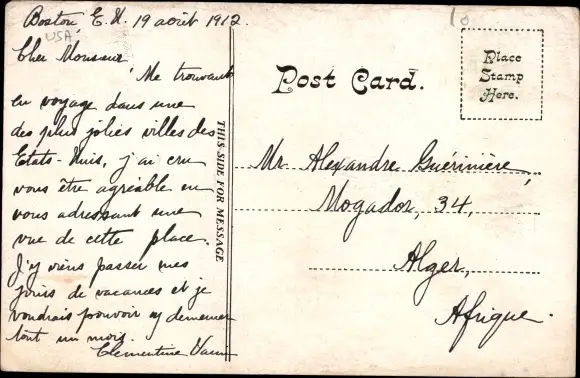 Boston, E. U. 19 août 1912.
USA
Cher Monsieur
Me trouvant
en voyage dans une
des plus jolies villes des
Etats-Unis, j'ai cru
vous être agréable en
vous adressant une
vue de cette place.
J'y viens passer mes
jours de vacances et je
voudrais pouvoir y demeurer
tout un mois.
Clementine
THIS SIDE FOR MESSAGE
Post Card.
Place
Stamp
Here.
Mr Alexandre Guérinière,
Mogador, 34,
Alger,
Afrique.